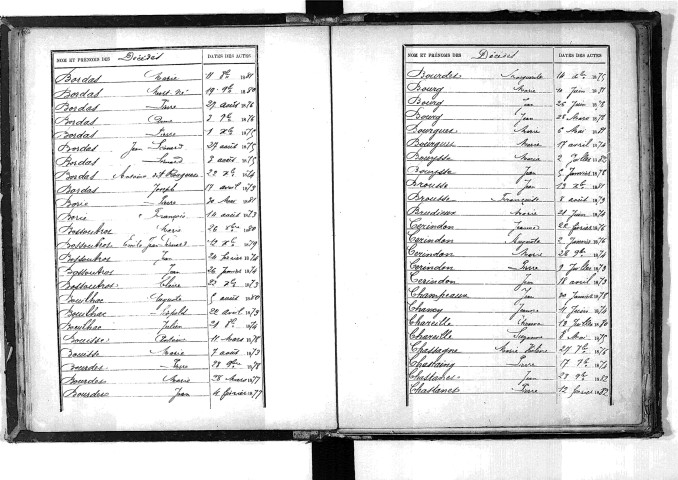 NOM ET PRÉNOMS DES Décédés DATES DES ACTES
Bordas Marie 11 8bre 1881
Bordas Mort-né 19 9bre 1880
Bordas Pierre 27 août 1876
Bordas 2 7bre 1876
Bordas Pierre 1 Xbre 1875
Bordas Jean Léonard 27 août 1875
Bordas Léonard 3 août 1875
Bordas Antoine 22 Xbre 1874
Bordas Joseph 17 avril 1873
Borie Pierre 30 Mai 1881
Borie François 14 août 1873
Bossoutrot Marie 26 1880
Bossoutrot Emile Jean Léonard 12 Xbre 1879
Bossoutrot Jean 24 février 1874
Bossoutrot Jean 26 Janvier 1874
Bossoutrot Claire 23 Xbre 1873
Bouilhac 5 août 1880
Bouilhac Léopold 22 avril 1879
Bouilhac Julien 21 8bre 1874
Bouisse 11 Mars 1878
Bouisse Marie 7 août 1873
Bourdes Pierre 28 9bre 1878
Bourdes Marie 28 Mars 1877
Bourdes Jean 4 février 1877
NOM ET PRÉNOMS DES Décédés DATES DES ACTES
Bourdes 14 Xbre 1875
Bourg Marie 10 Juin 1881
Bourg Jean 25 Juin 1878
Bourg Jean 28 Mars 1878
Bourgues Marie 6 Mai 1881
Bourgues Marie 17 avril 1874
Bouyssse Marie 2 Juillet 1882
Bouyssse Jean 5 Janvier 1878
Brousse Jean 13 Xbre 1881
Brousse Françoise 8 août 1879
Brudieux Marie 21 Juin 1874
Cerindon Jeanne 22 février 1876
Cerindon Auguste 2 Janvier 1876
Cerindon Marie 28 9bre 1874
Cerindon Pierre 9 Juillet 1873
Cerindon Jean 18 avril 1873
Champeaux Jean 30 Janvier 1878
Chancy Jeanne 4 Juin 1874
Chareille Etienne 13 Juillet 1880
Chareille Suzanne 8 Mai 1875
Chassagne Marie Hélène 27 7bre 1876
Chassaing Pierre 17 7bre 1874
Chastanet Jean 23 9bre 1882
Chastanet Pierre 12 février 1882